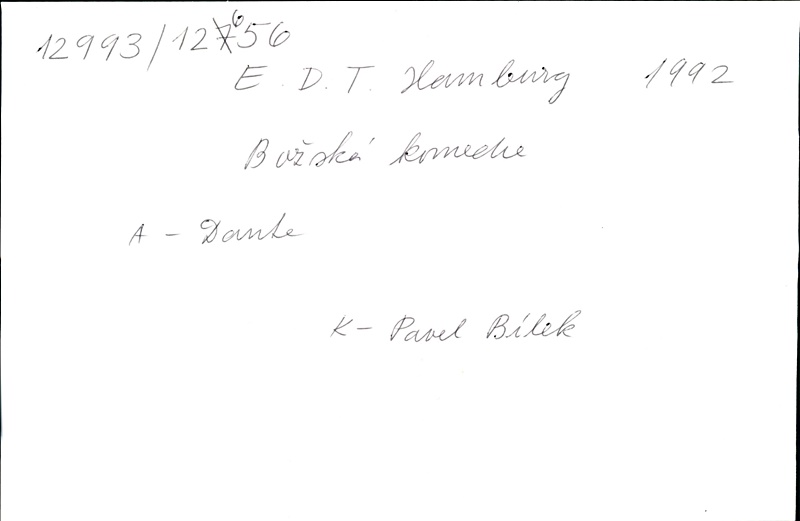 12993/12656
E. D. T. Hamburg 1992
Božská komedie
A - Dante
K - Pavel Bílek